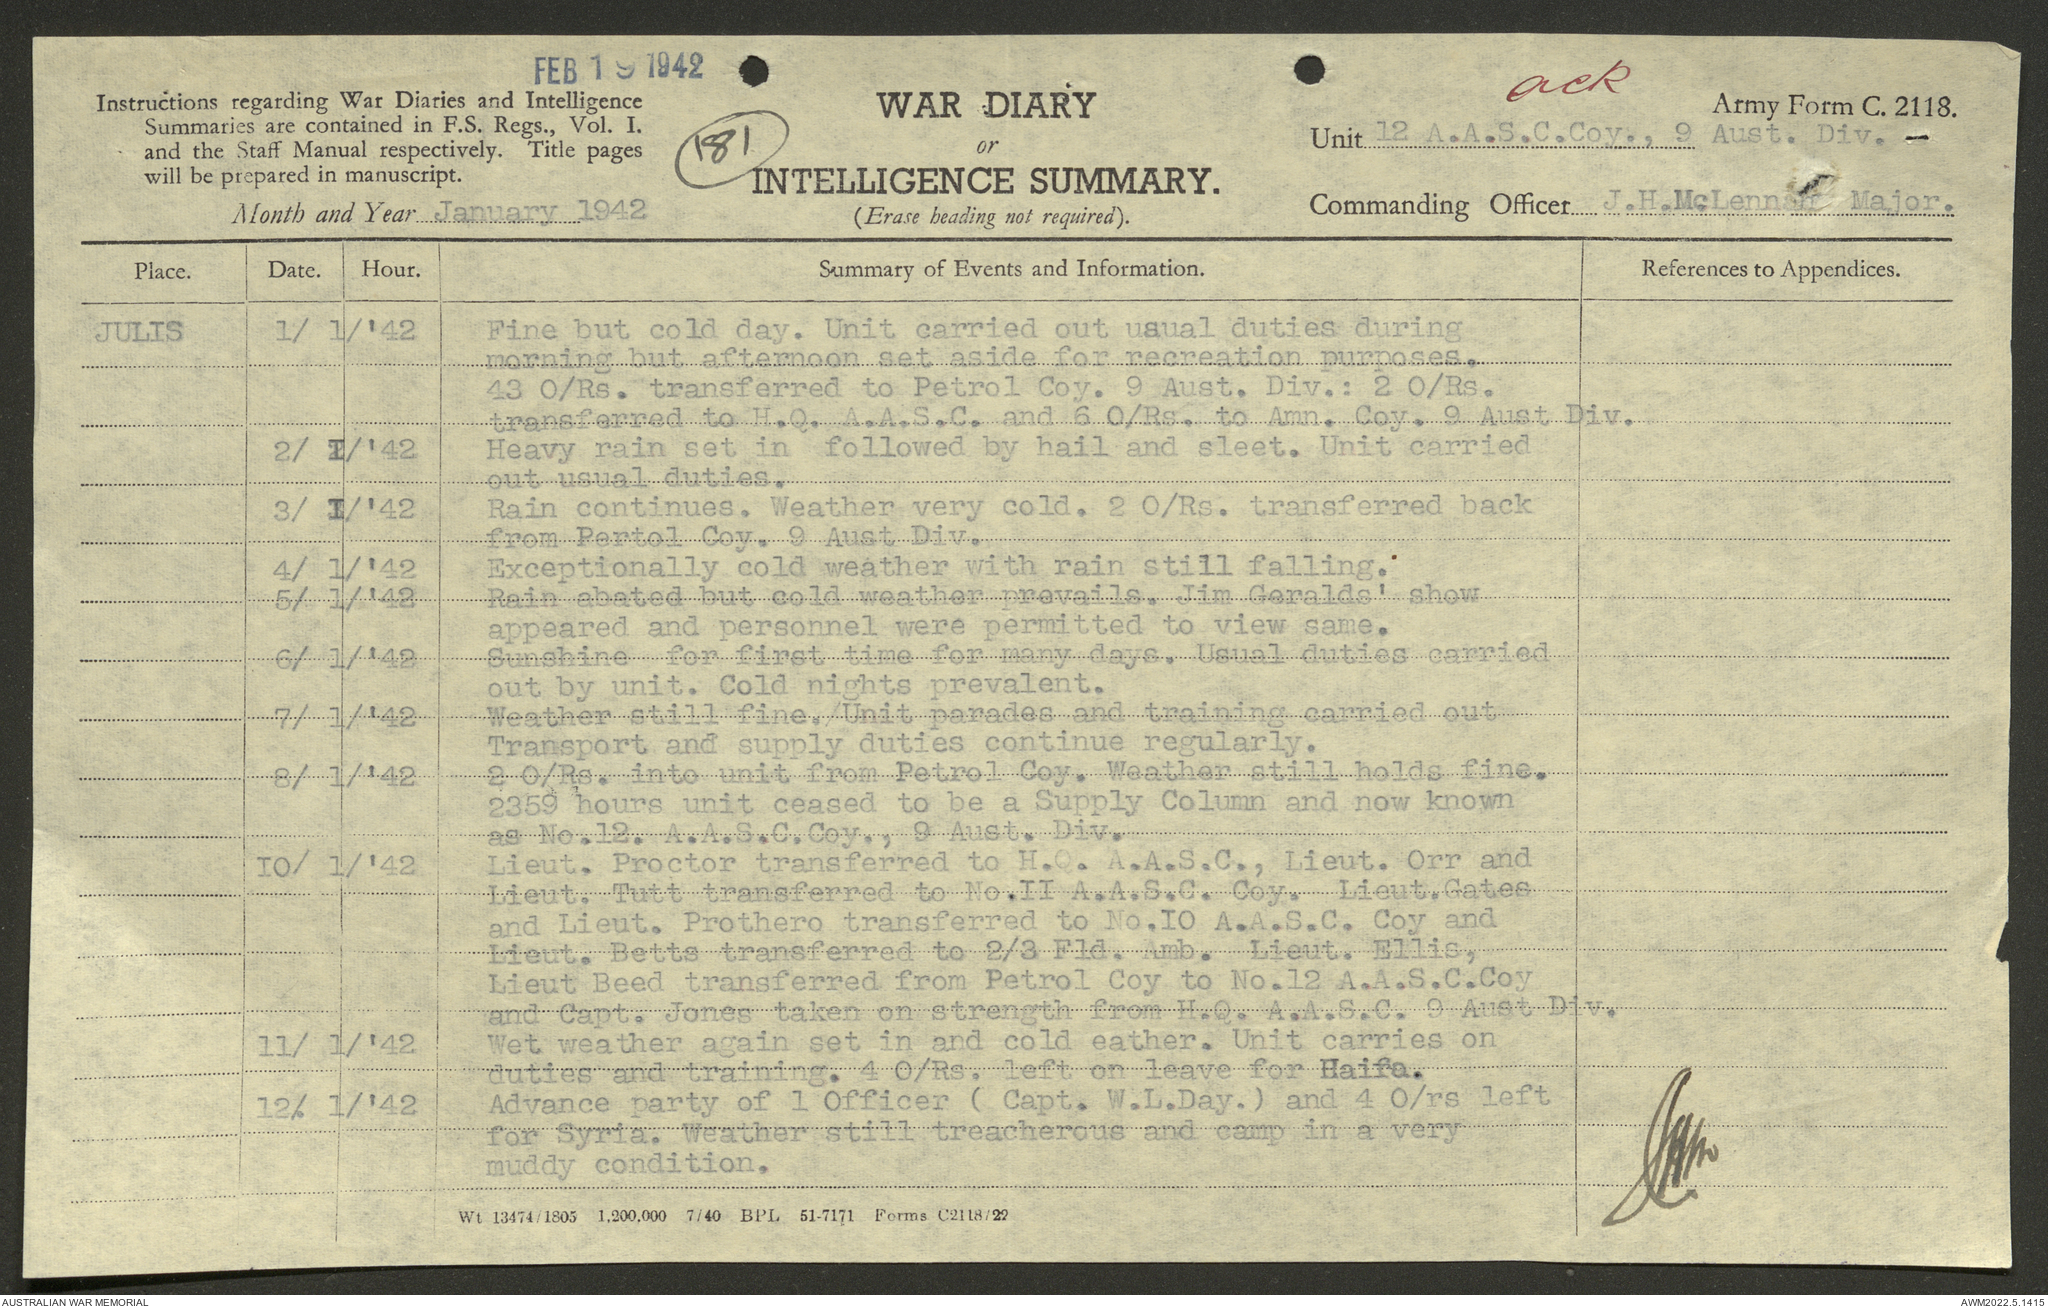 FEB 19 1942
Instructions regarding War Diaries and Intelligence
Summaries are contained in F.S. Regs., Vol. I.
and the Staff Manual respectively. Title pages
will be prepared in manuscript.
Month and Year January 1942
181
WAR DIARY
or
INTELLIGENCE SUMMARY.
(Erase heading not required).
ack
Army Form C. 2118.
Unit 12 A.A.S.C.Coy., 9 Aust. Div. -
Commanding Officer J.H.McLennan Major.
Place. Date. Hour. Summary of Events and Information. References to Appendices.
JULIS 1/ 1/'42 Fine but cold day. Unit carried out usual duties during
morning but afternoon set aside for recreation purposes.
43 O/Rs. transferred to Petrol Coy. 9 Aust. Div.: 2 O/Rs.
transferred to H.Q. A.A.S.C. and 6 O/Rs. to Amn. Coy. 9 Aust Div.
2/ I/'42 Heavy rain set in followed by hail and sleet. Unit carried
out usual duties.
3/ I/'42 Rain continues. Weather very cold. 2 O/Rs. transferred back
from Pertol Coy. 9 Aust Div.
4/ 1/'42 Exceptionally cold weather with rain still falling.
5/ 1/'42 Rain abated but cold weather prevails. Jim Geralds' show
appeared and personnel were permitted to view same.
6/ 1/'42 Sunshine for first time for many days. Usual duties carried
out by unit. Cold nights prevalent.
7/ 1/'42 Weather still fine./Unit parades and training carried out
Transport and supply duties continue regularly.
8/ 1/'42 2 O/Rs. into unit from Petrol Coy. Weather still holds fine.
2359 hours unit ceased to be a Supply Column and now known
as No.12. A.A.S.C.Coy., 9 Aust. Div.
IO/ 1/'42 Lieut. Proctor transferred to H.Q. A.A.S.C., Lieut. Orr and
Lieut. Tutt transferred to No.II A.A.S.C. Coy. Lieut.Gates
and Lieut. Prothero transferred to No.IO A.A.S.C. Coy and
Lieut. Betts transferred to 2/3 Fld. Amb. Lieut. Ellis,
Lieut Beed transferred from Petrol Coy to No.12 A.A.S.C.Coy
and Capt. Jones taken on strength from H.Q. A.A.S.C. 9 Aust Div.
11/ 1/'42 Wet weather again set in and cold eather. Unit carries on
duties and training. 4 O/Rs. left on leave for Haifa.
12/. 1/'42 Advance party of 1 Officer ( Capt. W.L.Day.) and 4 O/rs left
for Syria. Weather still treacherous and camp in a very
muddy condition.
Wt 13474/1805 1,200,000 7/40 BPL 51-7171 Forms C2118/22
AUSTRALIAN WAR MEMORIAL
AWM2022.5.1415